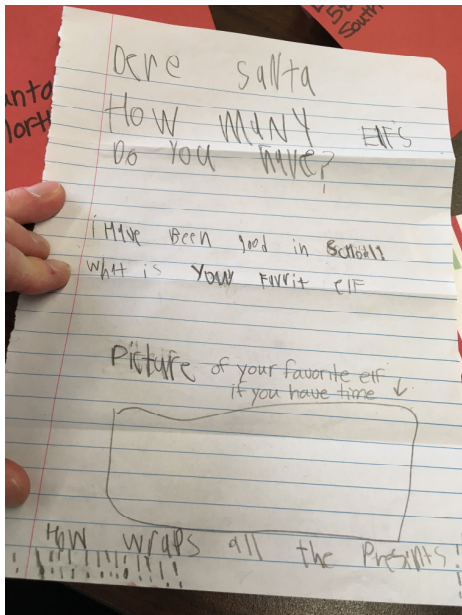 Dere santa
How many ElFs
Do you have?
i Have Been good in Schooll
What is your Favrit elF
Picture of your favorite elf
if you have time ↓
How wraps all the Presents!